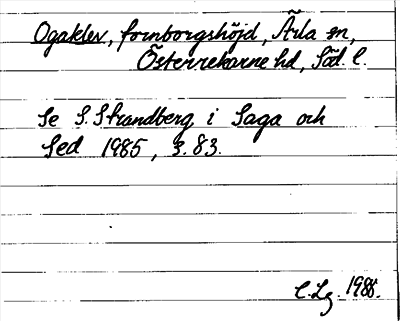 Ogaklev, fornborgshöjd, Ärla sn,
Österrekarne hd, Söd. l.
Se S. Strandberg i Saga och
Sed 1985, s. 83.
C. Lg. 1988.